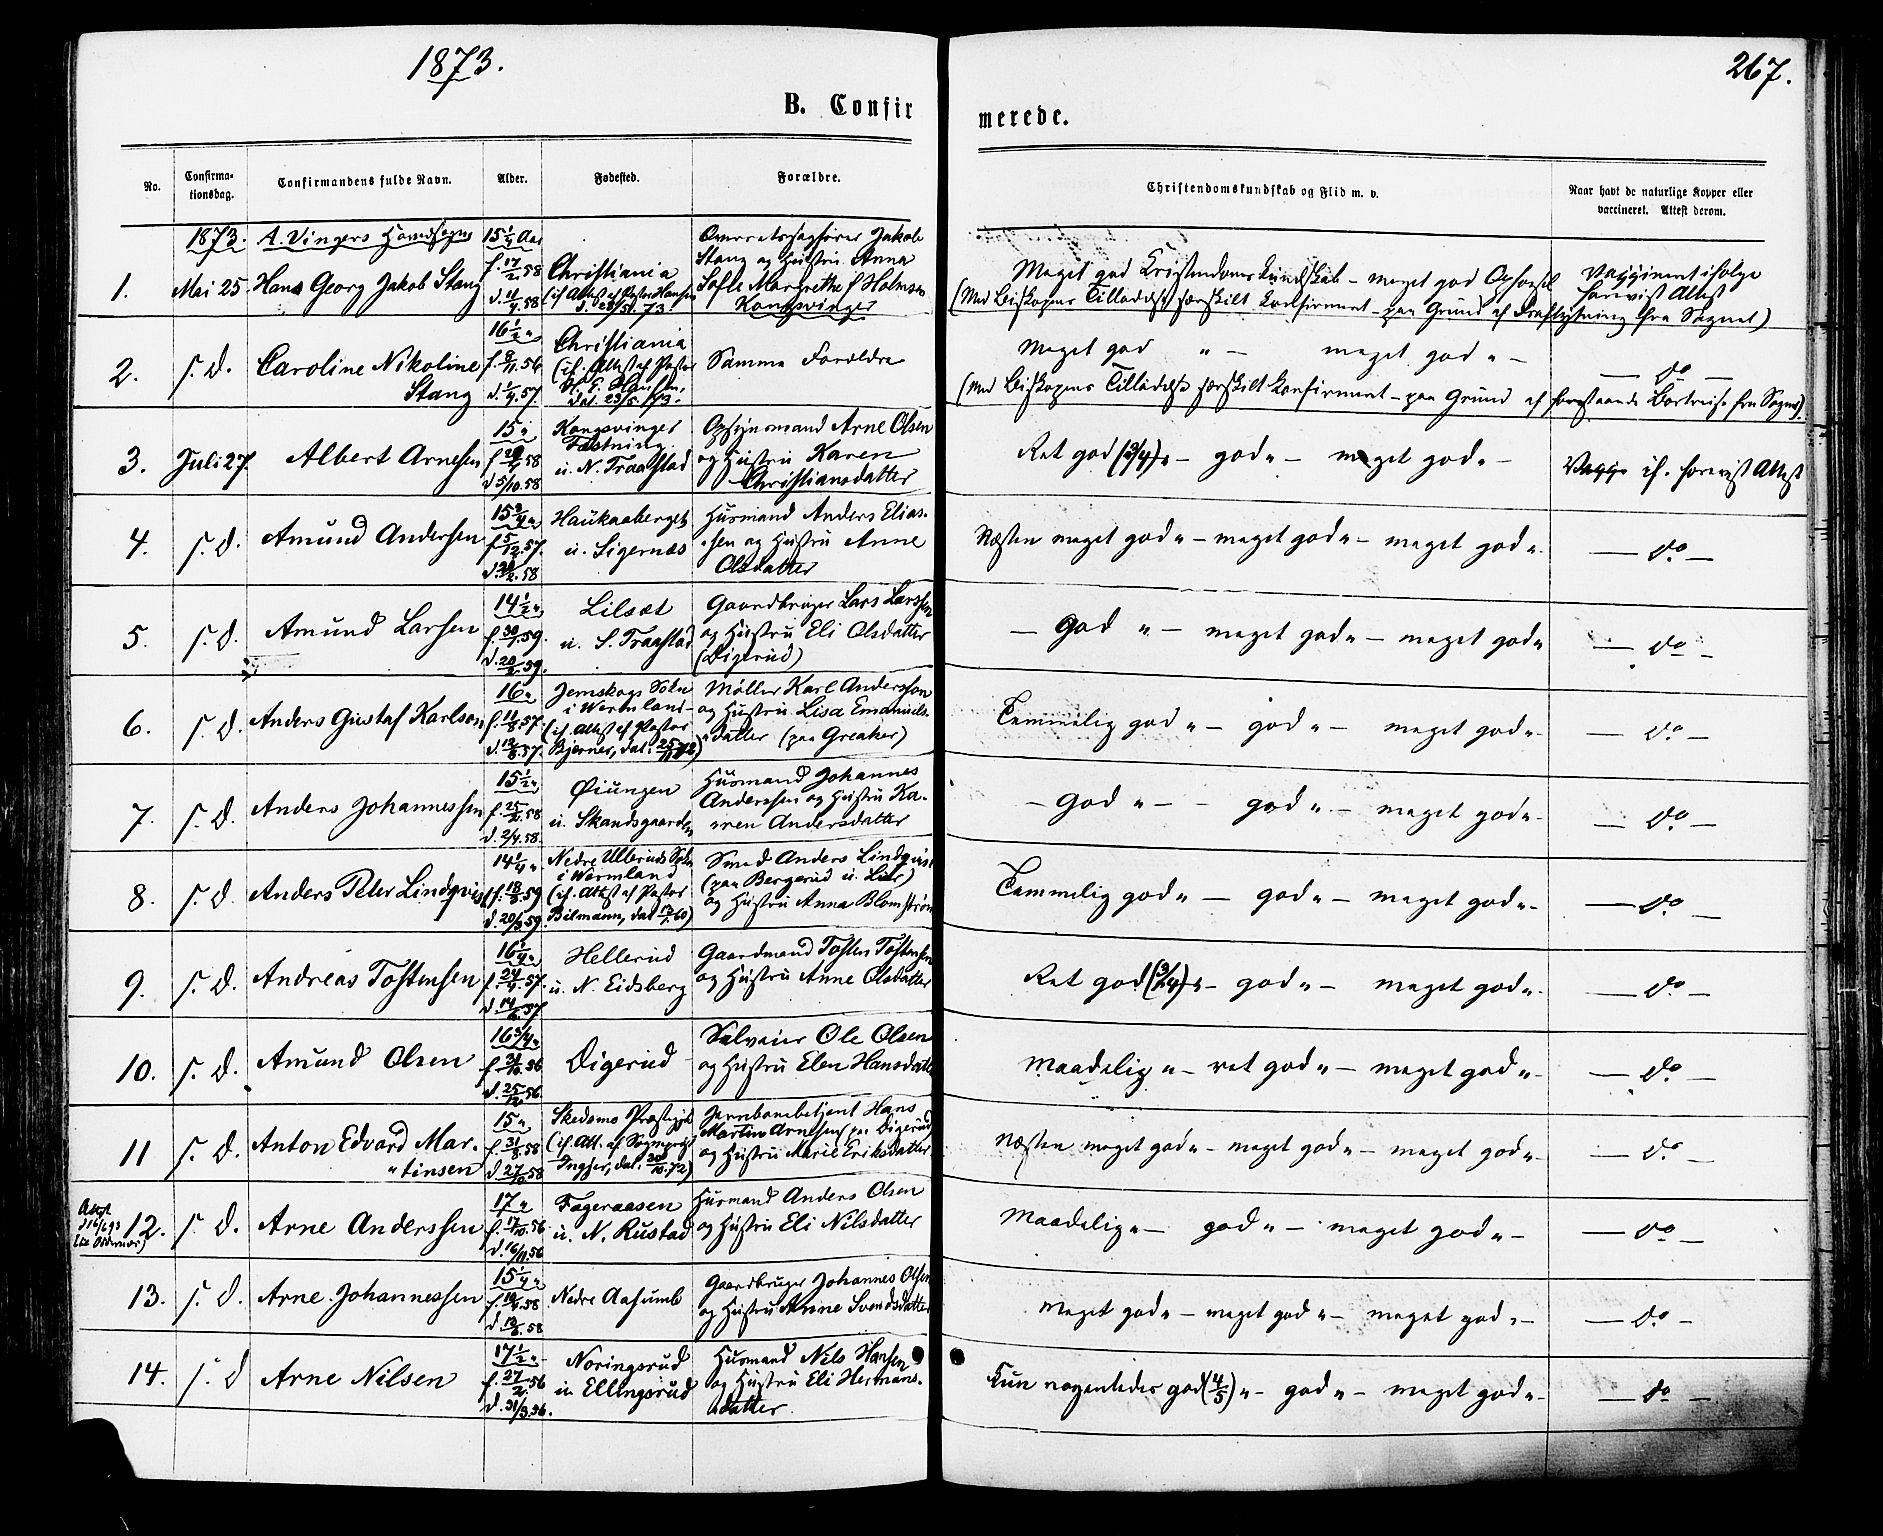 1873.
267.
B. Confirmerede.
No.
Confirmationsdag.
Confirmandens fulde Navn.
Alder.
Fødested.
Forældre.
Christendomskundskab og Flid m. v.
Naar havt de naturlige Kopper eller
vaccineret. Attest derom.
1873. A. Vingers Hovedsogn
1. Mai 25. Hans Georg Jakob Stang
15 1/4 Aar
f. 17/2.58
d. 11/4.58
Christiania
Overretssagfører Jakob
Stang og Hustru Anna
Sofie Margrethe f. Holmsen
Kongsvinger
Meget god Kristendomskundskab – meget god Opførsel
(Med Biskopens Tilladelse særskilt konfirmeret – paa Grund af Fraflytning fra Sognet)
Vaccineret ifølge
forevist Attest
2. s. d. Caroline Nikoline
Stang
16 1/2 "
f. 8/11.56
d. 1/4.57.
Christiania
(if. Attest af Pastor
dat. 23/5.73.
Samme Forældre
Meget god " – meget god " –
(Med Biskopens Tilladelse særskilt konfirmeret – paa Grund af forestaaende Bortreise fra Sognet).
— do —
3. Juli 27. Albert Arnesen
15 "
d 5/10.58
Kongsvinger
Fæstning
u. N. Traastad
Opsynsmand Arne Olsen
og Hustru Karen
Christiansdatter
Ret god (3/4) " – god " – meget god " –
Vacc. if. forevist Attest
4. s. d. Amund Andersen
15 3/4 "
f. 5/12.57.
Haukaaberget
u. Sigernæs
Husmand Anders Elias-
sen og Hustru Anne
Olsdatter
Næsten meget god " – meget god " – meget god " –
— do —
5. s. d. Amund Larsen
14 1/2 "
f. 30/1.59.
d. 20/2.59.
Lilsæt
u. S. Traastad
Gaardbruger Lars Larssen
og Hustru Eli Olsdatter
(Digerud)
– God " – meget god " – meget god "
— do —
6. s. d. Anders Gustaf Karlson
16 "
f. 11/8.57.
Jernskogs Sokn
i Wermland
(if. Attest af Pastor
Bjerner, dat. 25/11 72)
Møller Karl Andersson
og Hustru Lisa Emanuels-
datter (paa Greaker)
Temmelig god " – god " – meget god " –
— do —
7. s. d. Anders Johannessen
15 1/2 "
f. 25/2.58
d. 2/4.58.
Øiungen
u. Skandsgaarden
Husmand Johannes
Anderssen og Hustru Ka-
ren Andersdatter
– God " – – god " – meget god " –
— do —
8. s. d. Anders Peter Lindqvist
14 1/4 "
f. 18/3.59
d. 20/3.59.
Nedre Ulleruds Sokn
i Wermland
(if. Attest af Pastor
Smed Anders Lindqvist
(paa Bergerud u. Lier)
og Hustru Anna Blomstrøm
Temmelig god " – god " – meget god " –
— do —
9. s. d. Andreas Tostensen
16 1/4 "
f. 24/4.57.
Hellerud
u. N. Eidsberg
Gaardmand Tosten Tostensen
og Hustru Anne Olsdatter
Ret god (3/4) " – god " – meget god " –
— do —
10. s. d. Amund Olsen
16 3/4 "
Digerud
Selveier Ole Olsen
og Hustru Elen Hansdatter
Maadelig " – ret god " – meget god " –
— do —
11 s. d. Anton Edvard Mar-
tinsen
15 "
f. 31/8.58
Skedsmo Præstegjeld
(if. Att. af Sognepræst
Ingjer, dat. 30/10.72)
Jernbanebetjent Hans
Martin Arnesen (paa Digerud)
og Hustru Marie Eriksdatter
Næsten meget god " – meget god " – meget god " –
— do —
Attest
12. s. d. Arne Anderssen
17 "
f. 17/10.56
d. 16/11.56
Fageraasen
u. N. Rustad
Husmand Anders Olsen
og Hustru Eli Nilsdatter
Maadelig " – god " – meget god " –
— do —
13. s. d. Arne Johannessen
15 1/4 "
Nedre Aasumb
Gaardbruger Johannes Olsen
og Hustru Anne Svendsdatter
Meget god " – meget god " – meget god " –
— do —
14. s. d Arne Nilsen
17 1/2 "
f. 27/2.56
d. 31/3.56.
Noringsrud
u. Ellingsrud
Husmand Nils Hansen
og Hustru Eli Hermans-
datter
Kun nogenledes god (4/5) " – god " – meget god " –
— do —